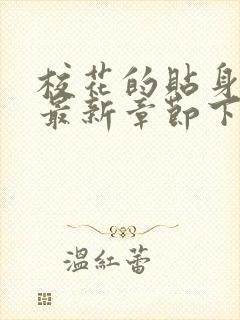 校花的貼身
最新章節下
溫紅蕾